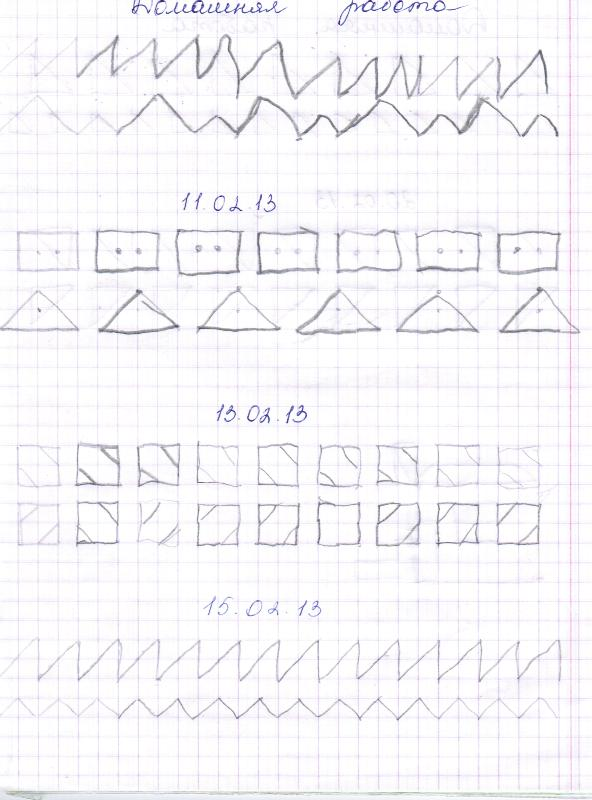 Домашняя работа
11.02.13
13.02.13
15.02.13